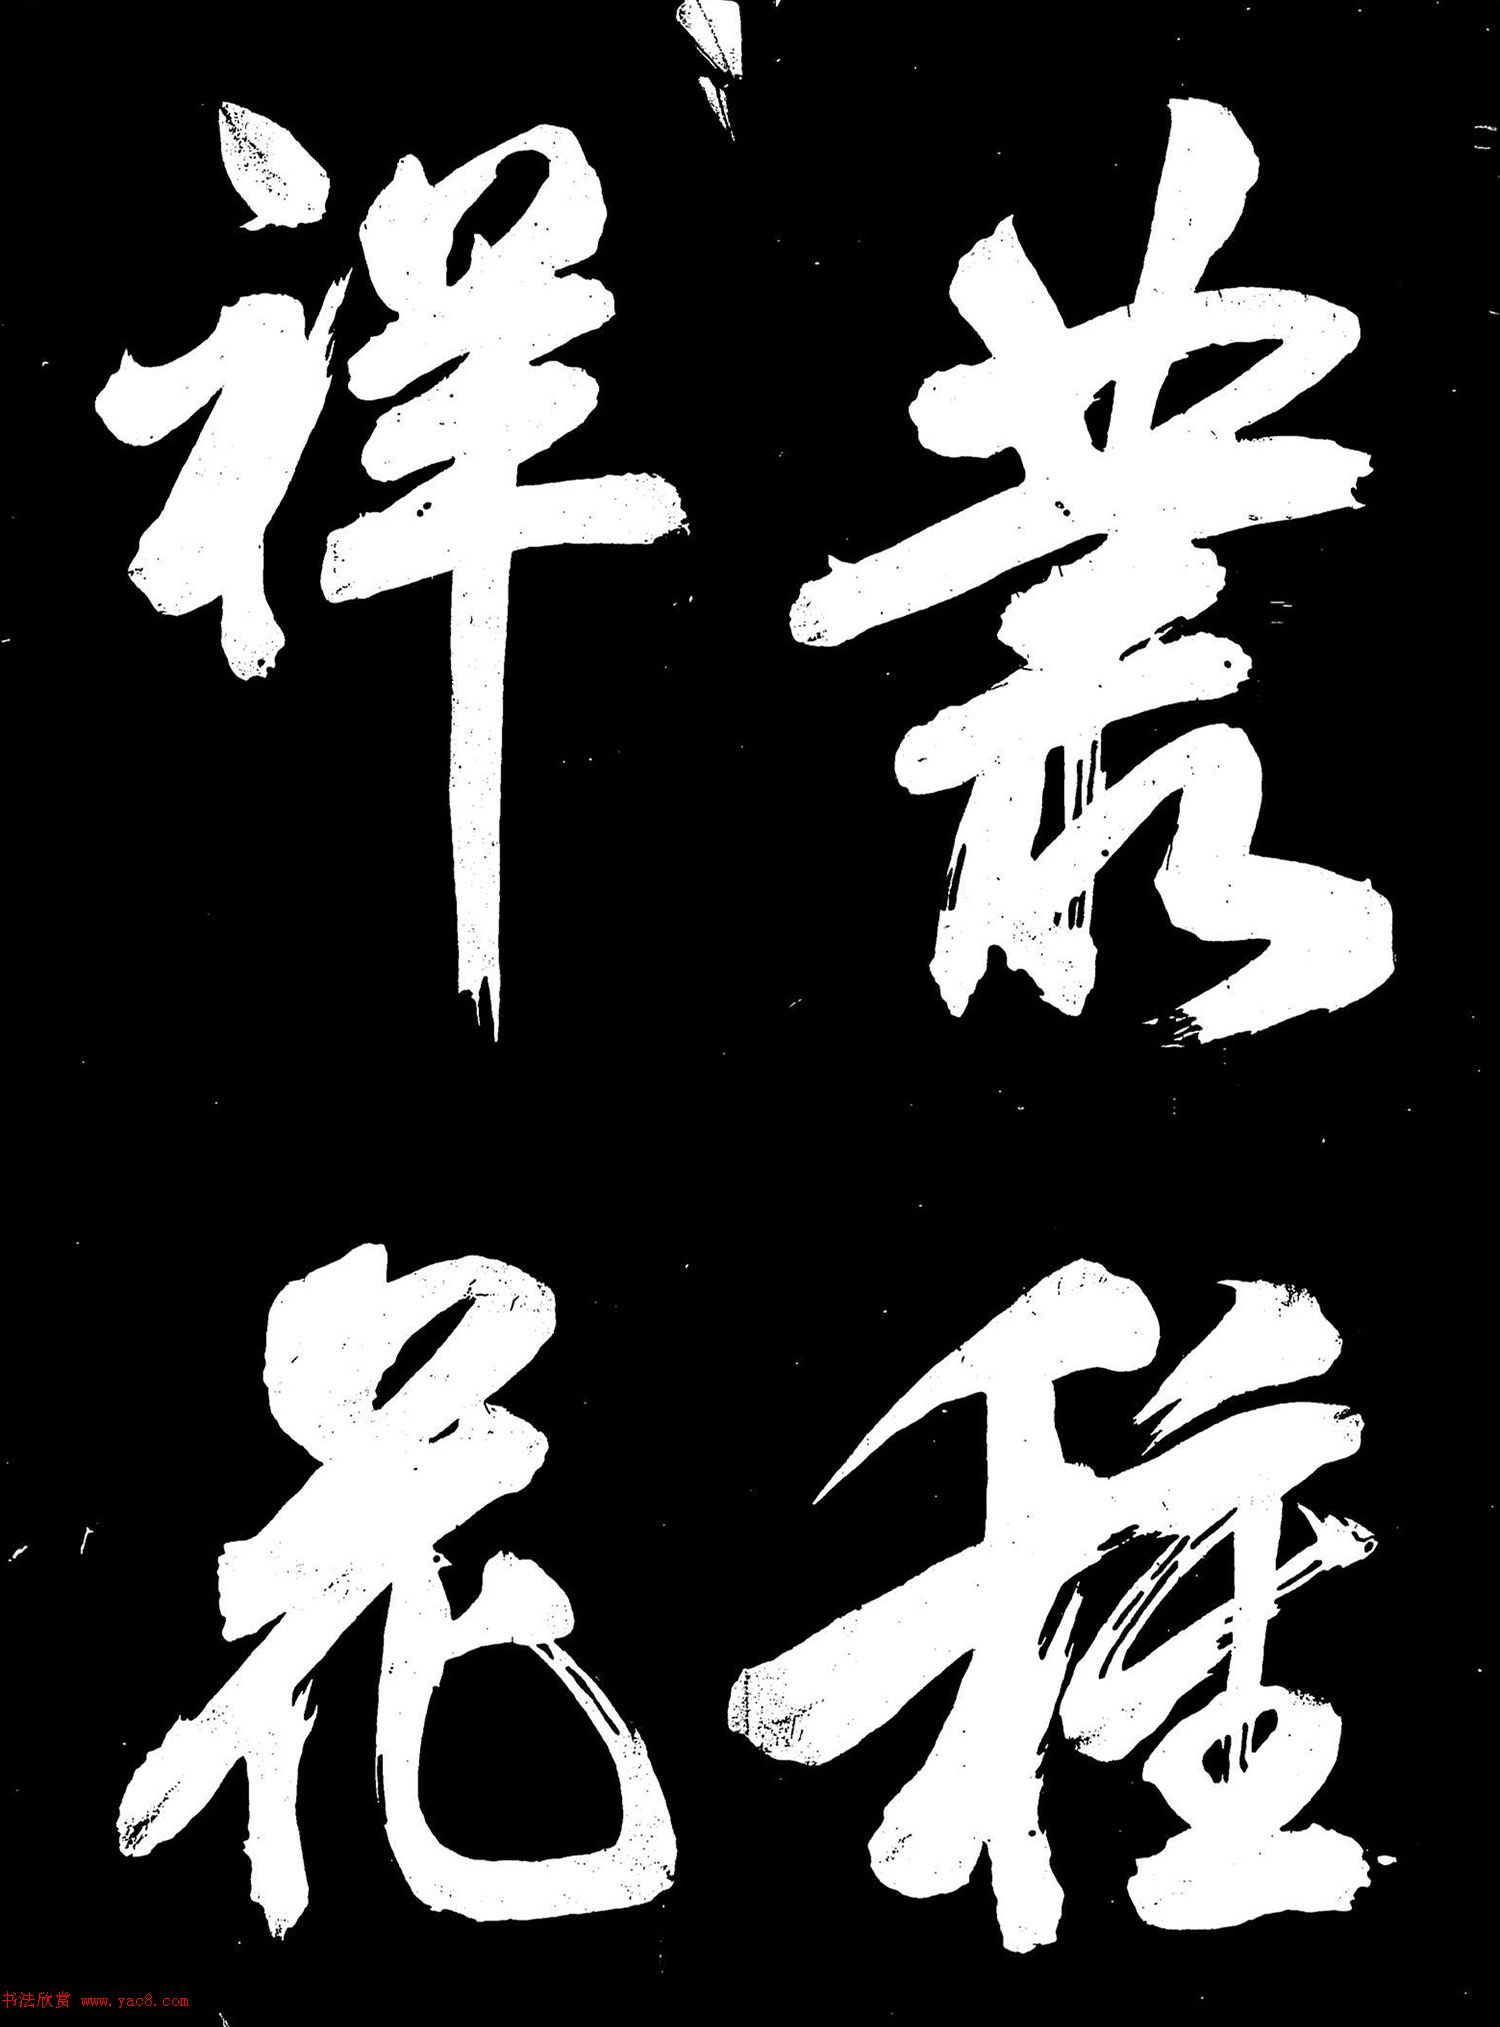 叢種
祥花
书法欣赏 www.yac8.com